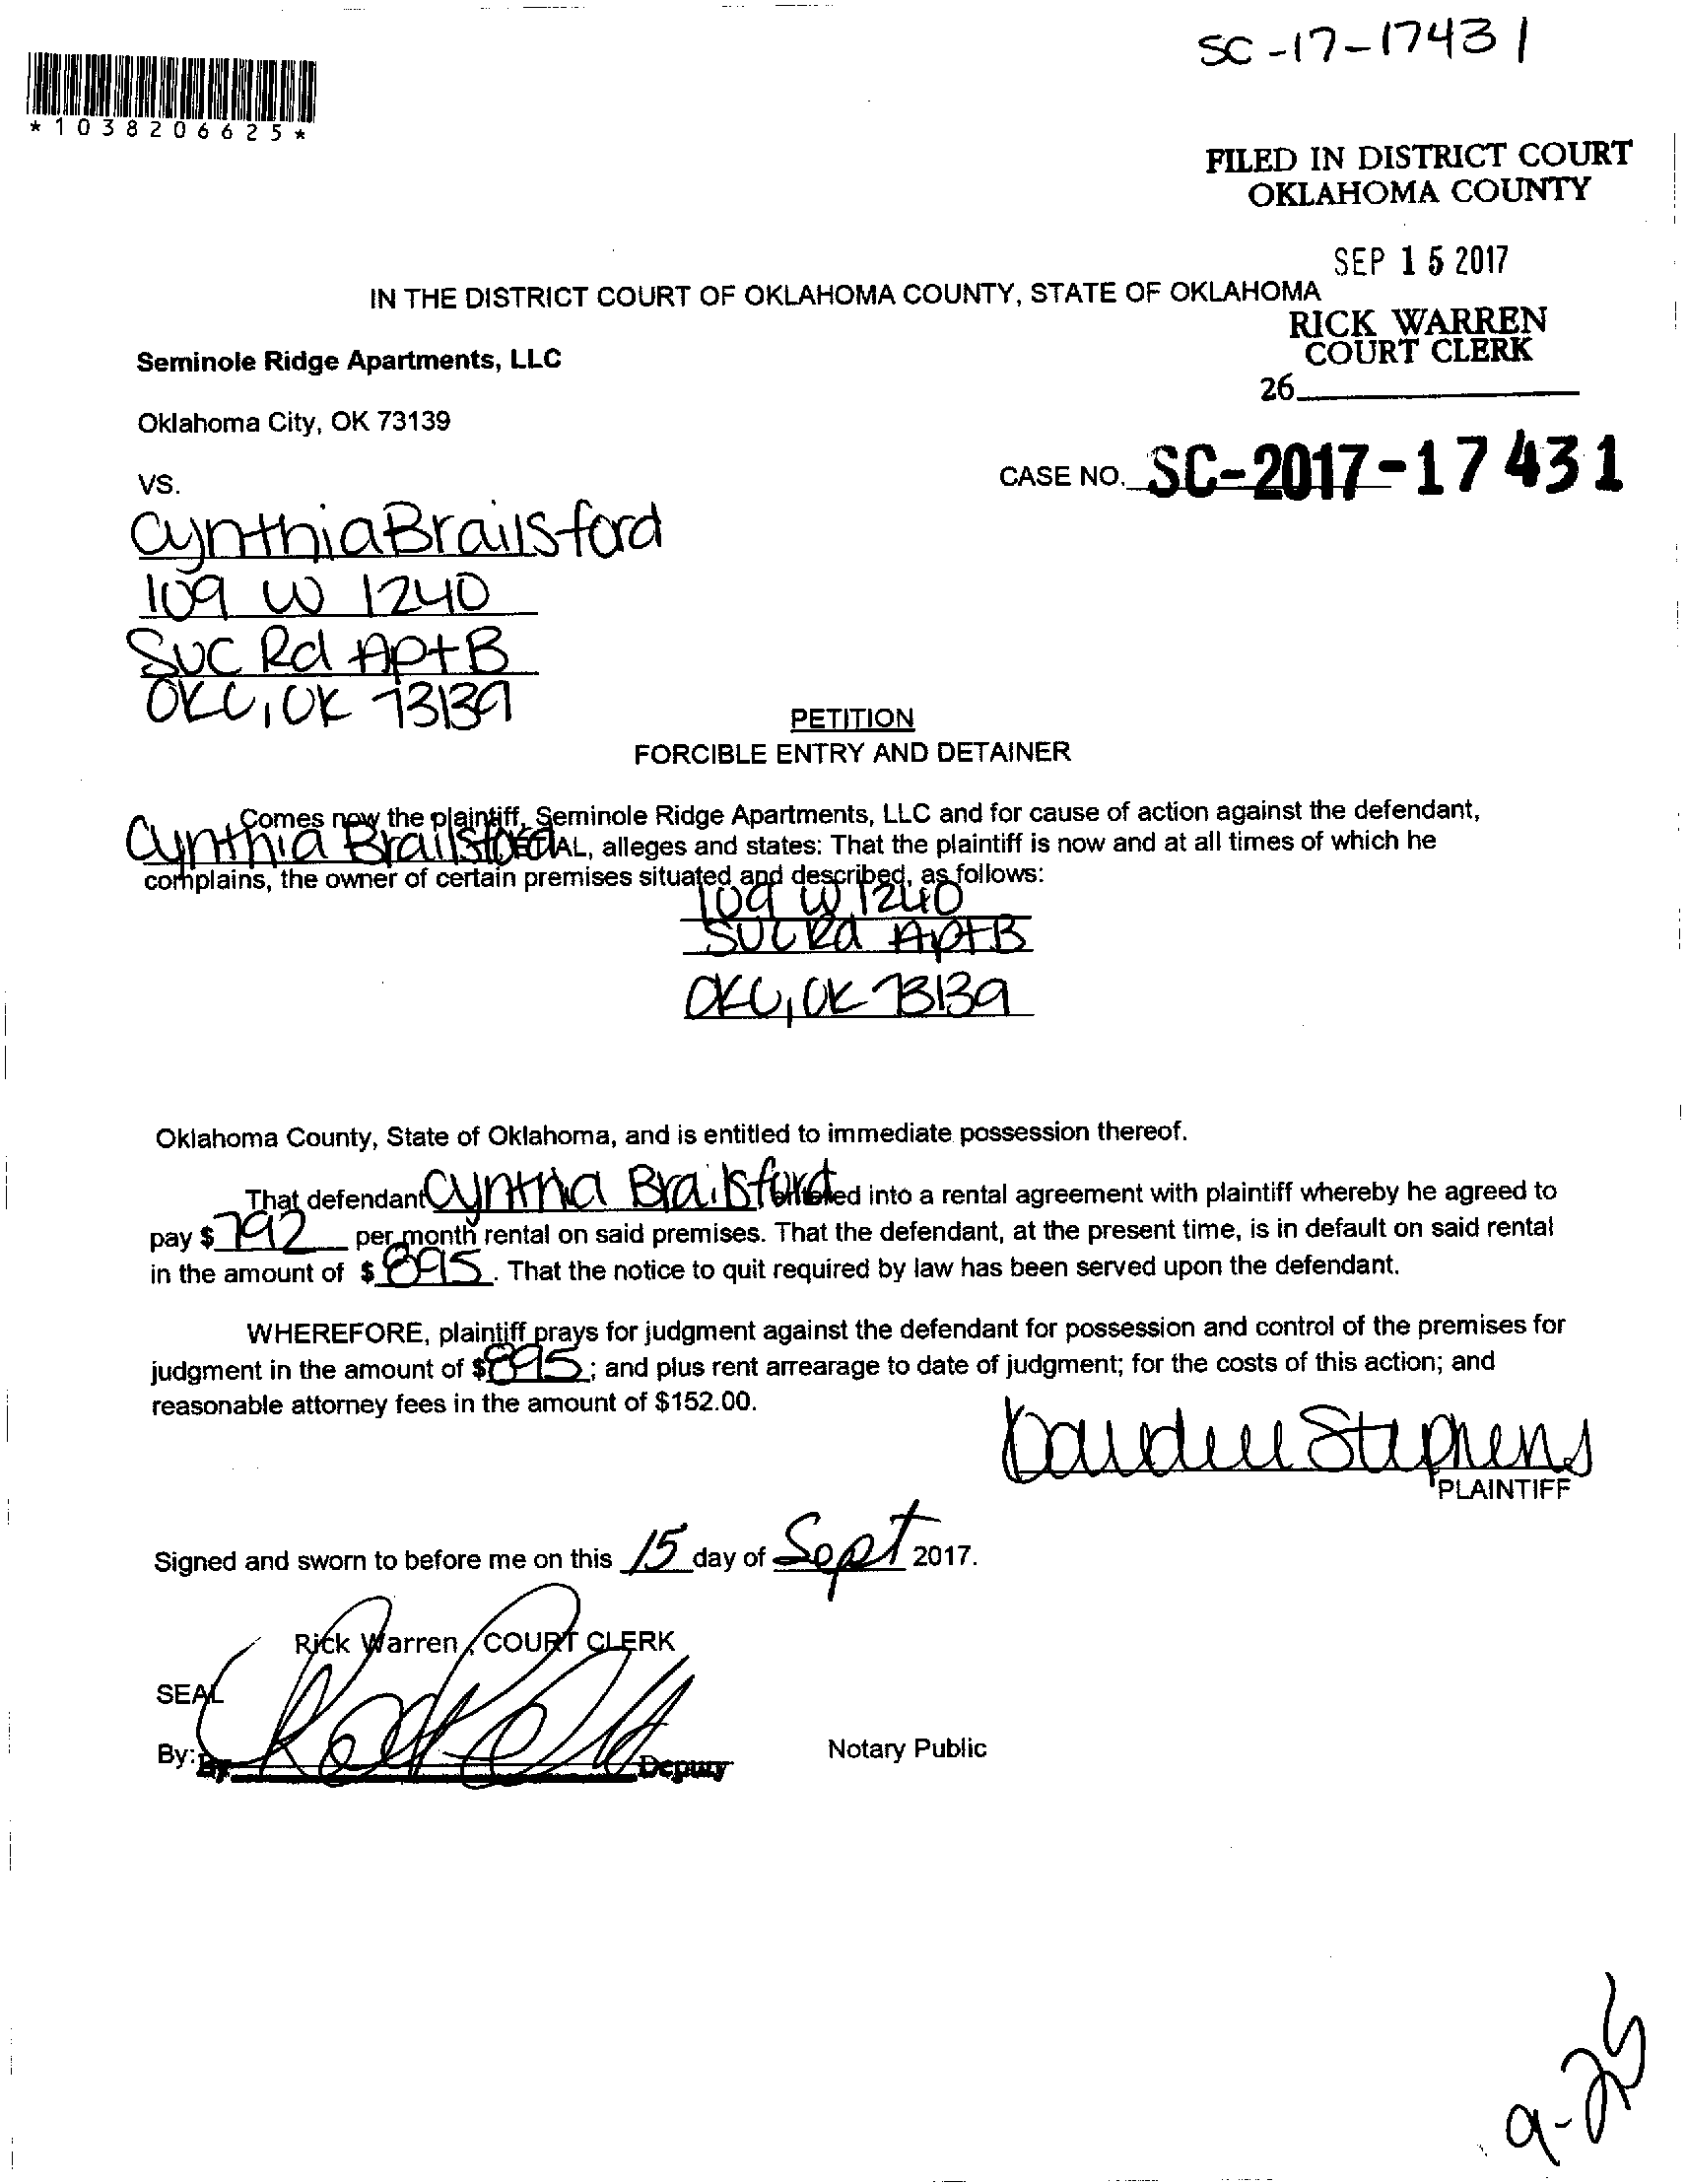 SC-17-17431
*1038206625*
FILED IN DISTRICT COURT
OKLAHOMA COUNTY
SEP 15 2017
IN THE DISTRICT COURT OF OKLAHOMA COUNTY, STATE OF OKLAHOMA
RICK WARREN
COURT CLERK
Seminole Ridge Apartments, LLC
26
Oklahoma City, OK 73139
CASE NO. SC-2017-17431
VS.
Cynthia Brailsford
109 W 1240
SVC Rd Apt B
OKC, OK 73139
PETITION
FORCIBLE ENTRY AND DETAINER
Comes now the plaintiff, Seminole Ridge Apartments, LLC and for cause of action against the defendant,
Cynthia Brailsford ETAL, alleges and states: That the plaintiff is now and at all times of which he
complains, the owner of certain premises situated and described, as follows:
109 W 1240
SVC Rd Apt B
OKC, OK 73139
Oklahoma County, State of Oklahoma, and is entitled to immediate possession thereof.
That defendant Cynthia Brailsford entered into a rental agreement with plaintiff whereby he agreed to
pay $ 792 per month rental on said premises. That the defendant, at the present time, is in default on said rental
in the amount of $ 895. That the notice to quit required by law has been served upon the defendant.
WHEREFORE, plaintiff prays for judgment against the defendant for possession and control of the premises for
judgment in the amount of $895; and plus rent arrearage to date of judgment; for the costs of this action; and
reasonable attorney fees in the amount of $152.00.
Stephens
PLAINTIFF
Signed and sworn to before me on this 15 day of Sept 2017.
Rick Warren, COURT CLERK
SEAL
By: By Deputy
Notary Public
9-25